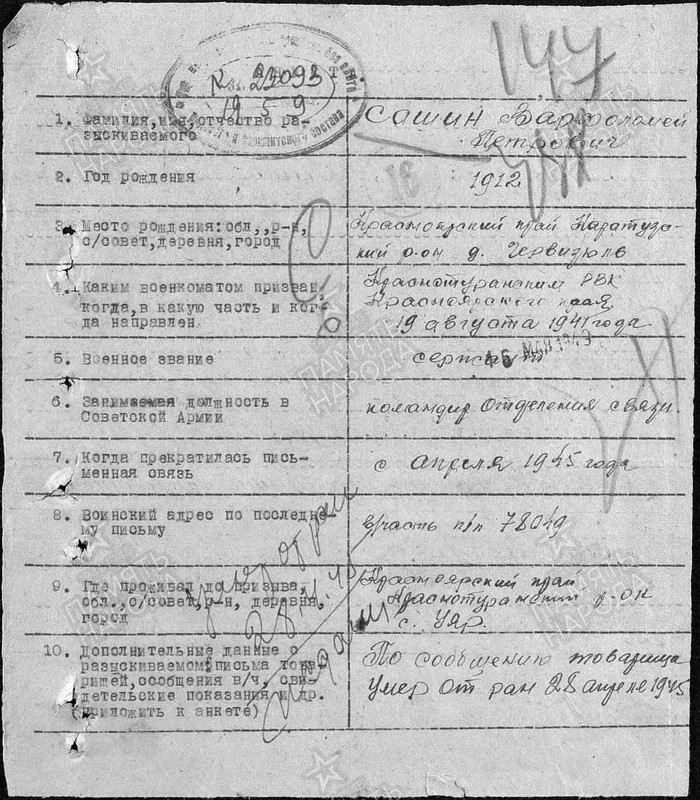 147
Кв. 23093
19 5 9
1. Фамилия,имя,отчество ра-
зыскиваемого
Сашин Варфоломей
Петрович
2. Год рождения
1912
3. Место рождения:обл,,р-н,
с/совет,деревня,город
Красноярский край Каратузс-
кий р-он д. Червизюль
4. Каким военкоматом призван
когда,в какую часть и ког-
да направлен
Краснотуранским РВК
Красноярского края
19 августа 1941 года
5. Военное звание
сержант
МАЯ 1949
6. Занимаемая должность в
Советской Армии
командир отделения связи.
7. Когда прекратилась пись-
менная связь
с апреля 1945 года
8. Воинский адрес по последне-
му письму
в/часть п/п 78049
9. Где проживал до призыва
обл.,с/совет,р-н, деревня,
город
Красноярский край
Краснотуранский р-он
с. Уяр.
10. Дополнительные данные о
разыскиваемом:письма това-
рищей,сообщения в/ч, сви-
детельские показания и др.
(приложить к анкете)
По сообщению товарища
умер от ран 28 апреле 1945
умер от ран
28.4.45
ПАМЯТЬ
НАРОДА